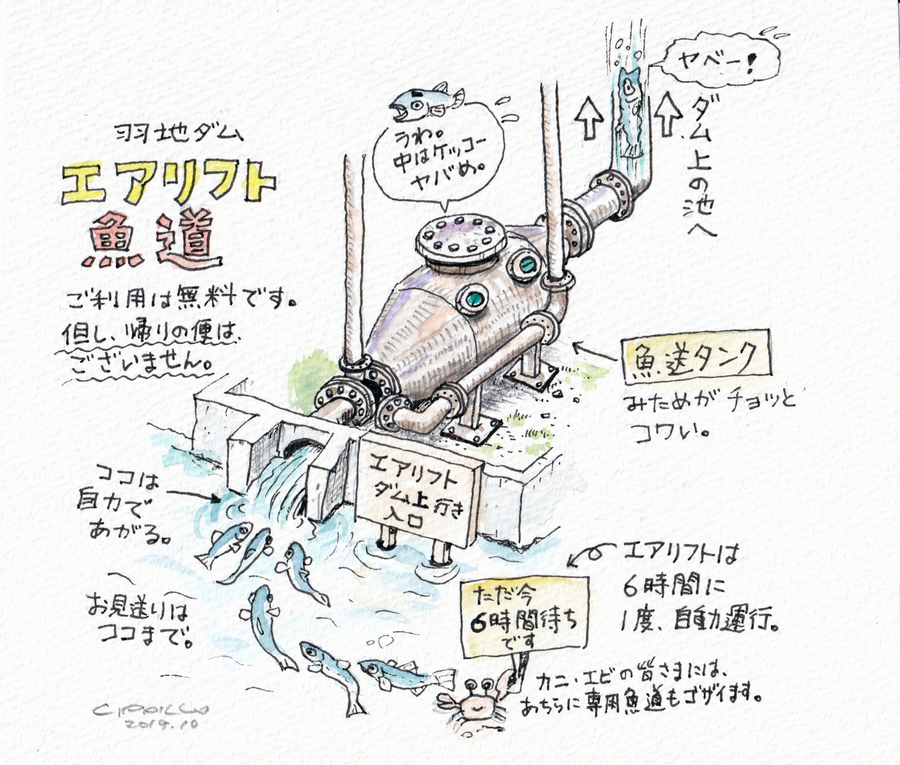 羽地ダム
エアリフト
魚道
ご利用は無料です。
但し、帰りの便は、
ございません。
うわ。
中はケッコー
ヤバめ。
ヤベー!
ダム上の池へ
魚送タンク
みためがチョッと
コワい。
ココは
自力で
あがる。
エアリフト
ダム上行き
入口
お見送りは
ココまで。
ただ今
6時間待ち
です
エアリフトは
6時間に
1度、自動運行。
カニ・エビの皆さまには、
あちらに専用魚道もゴザイます。
2019.10